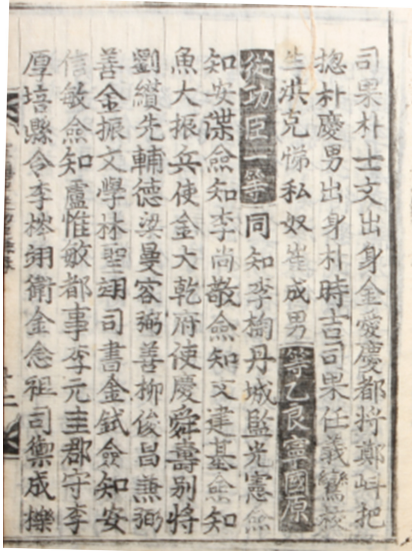 司果朴士文出身金愛慶都將鄭屽把
摠朴慶男出身朴時吉司果任義鸞校
生洪克悌私奴崔成男等乙良寧國原
從功臣一等同知李楘丹城監光憲僉
知安㴒僉知李尚敬僉知文建基僉知
魚大振兵使金大乾府使慶舜壽別將
劉纘先輔德梁曼容弼善柳俊昌兼弼
善金振文學林聖翊司書金鉽僉知安
信敏僉知盧惟敏都事李元圭郡守李
厚培縣令李棽翊衛金念祖司禦成櫟